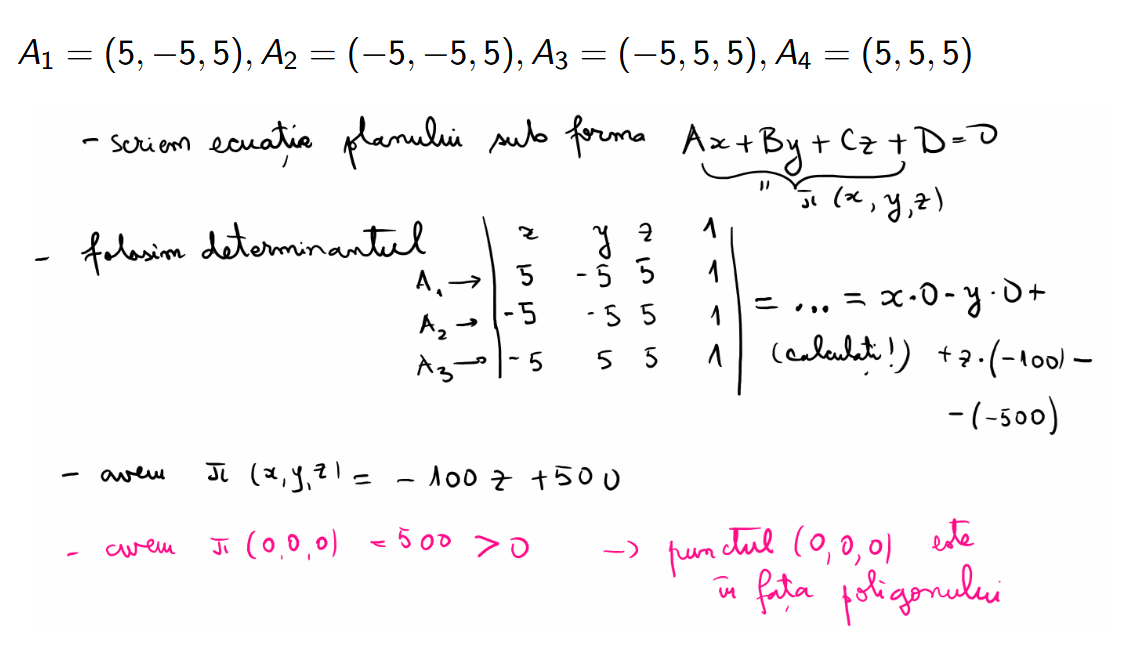 A₁ = (5, −5, 5), A₂ = (−5, −5, 5), A₃ = (−5, 5, 5), A₄ = (5, 5, 5)
- scriem ecuația planului sub forma Ax+By+Cz+D=0
" π (x, y, z)
- folosim determinantul | x y z 1 |
A₁ → | 5 -5 5 1 |
A₂ → | -5 -5 5 1 | = ... = x·0-y·0+
A₃ → | -5 5 5 1 | (calculați!) +z·(-100) -
-(-500)
- avem π (x,y,z) = - 100 z +500
- avem π (0,0,0) = 500 > 0 → punctul (0,0,0) este
în fața poligonului